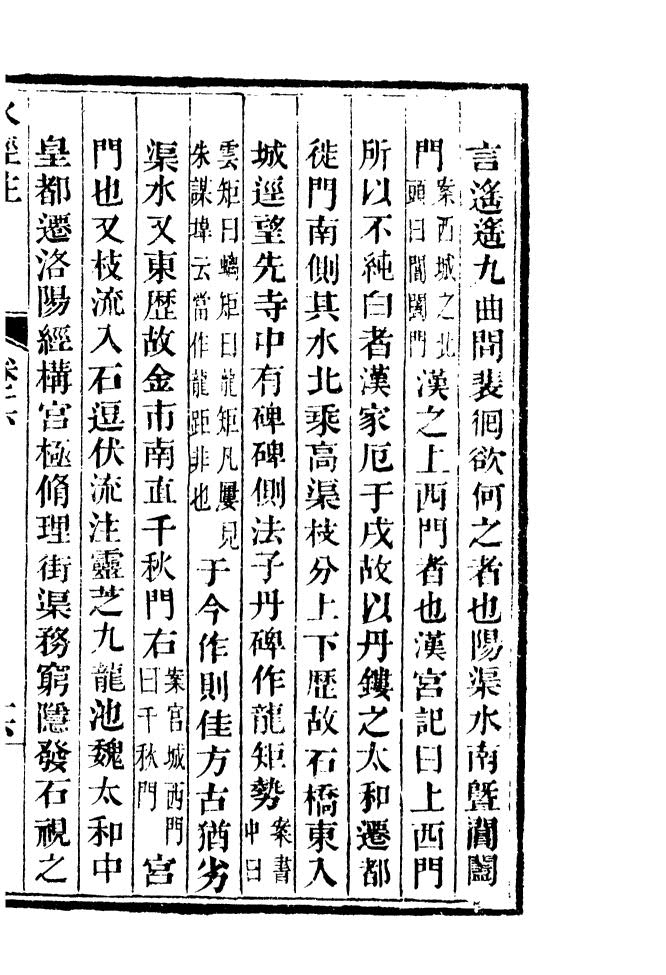 言遙遙九曲間裴徊欲何之者也陽渠水南曁閶闔
門案西城之北頭曰閶闔門漢之上西門者也漢宮記曰上西門
所以不純白者漢家厄于戌故以丹鏤之太和遷都
徙門南側其水北乘高渠枝分上下歴故石橋東入
城逕望先寺中有碑碑側法子丹碑作龍矩勢案書中曰
雲矩曰螭矩曰龍矩凡屢見朱謀㙔云當作龍距非也于今作則佳方古猶劣
渠水又東歴故金市南直千秋門右案宮城西門曰千秋門宮
門也又枝流入石逗伏流注靈芝九龍池魏太和中
皇都遷洛陽經構宮極脩理街渠務窮隱發石視之
水經注